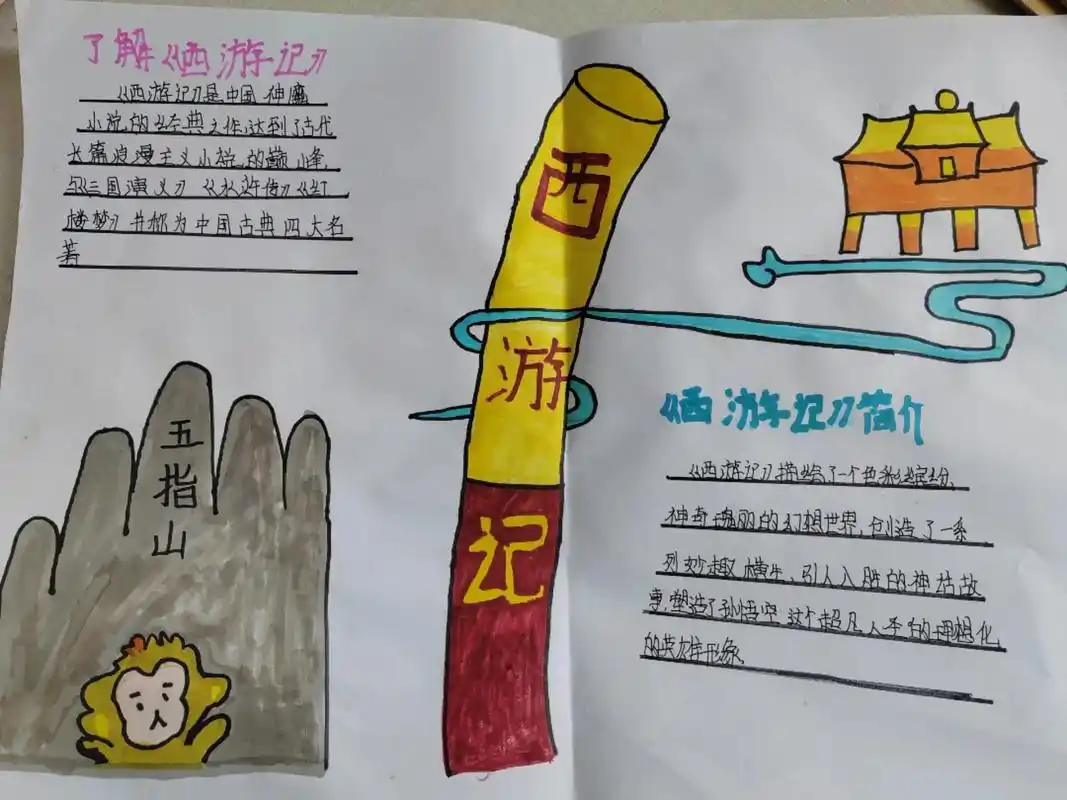 了解《西游记》
《西游记》是中国神魔
小说的经典之作,达到了古代
长篇浪漫主义小说的巅峰,
与《三国演义》《水浒传》《红
楼梦》并称为中国古典四大名
著
五指山
西游记
《西游记》简介
《西游记》描绘了一个色彩缤纷、
神奇瑰丽的幻想世界,创造了一系
列妙趣横生、引人入胜的神话故
事,塑造了孙悟空这个超凡人圣的理想化
的英雄形象。